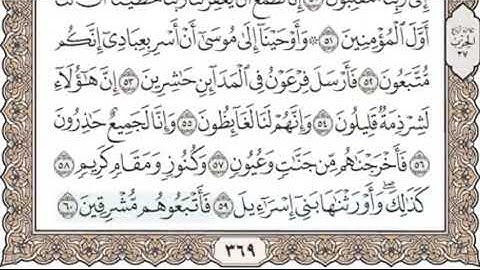 إِلَىٰ رَبِّنَا مُنقَلِبُونَ ۝٥٠ إِنَّا نَطْمَعُ أَن يَغْفِرَ لَنَا رَبُّنَا خَطَٰيَٰنَآ أَن كُنَّآ
أَوَّلَ ٱلْمُؤْمِنِينَ ۝٥١ ۞ وَأَوْحَيْنَآ إِلَىٰ مُوسَىٰٓ أَنْ أَسْرِ بِعِبَادِىٓ إِنَّكُم
مُّتَّبَعُونَ ۝٥٢ فَأَرْسَلَ فِرْعَوْنُ فِى ٱلْمَدَآئِنِ حَٰشِرِينَ ۝٥٣ إِنَّ هَٰٓؤُلَآءِ
لَشِرْذِمَةٌ قَلِيلُونَ ۝٥٤ وَإِنَّهُمْ لَنَا لَغَآئِظُونَ ۝٥٥ وَإِنَّا لَجَمِيعٌ حَٰذِرُونَ
۝٥٦ فَأَخْرَجْنَٰهُم مِّن جَنَّٰتٍ وَعُيُونٍ ۝٥٧ وَكُنُوزٍ وَمَقَامٍ كَرِيمٍ ۝٥٨
كَذَٰلِكَۖ وَأَوْرَثْنَٰهَا بَنِىٓ إِسْرَٰٓءِيلَ ۝٥٩ فَأَتْبَعُوهُم مُّشْرِقِينَ ۝٦٠
٣٦٩
الحزب
٣٧